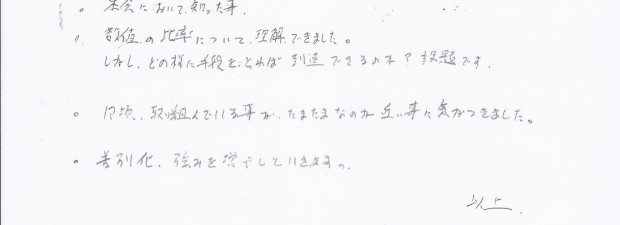 。本会において知った事.
。数値の比率について、理解できました。
しかし、どの様に手段をとれば 到達できるのか?課題です.
。日頃、取り組んでいる事が、たまたまなのか 近い事に気がつきました。
。差別化、強みを増やしていきますっ.
以上.